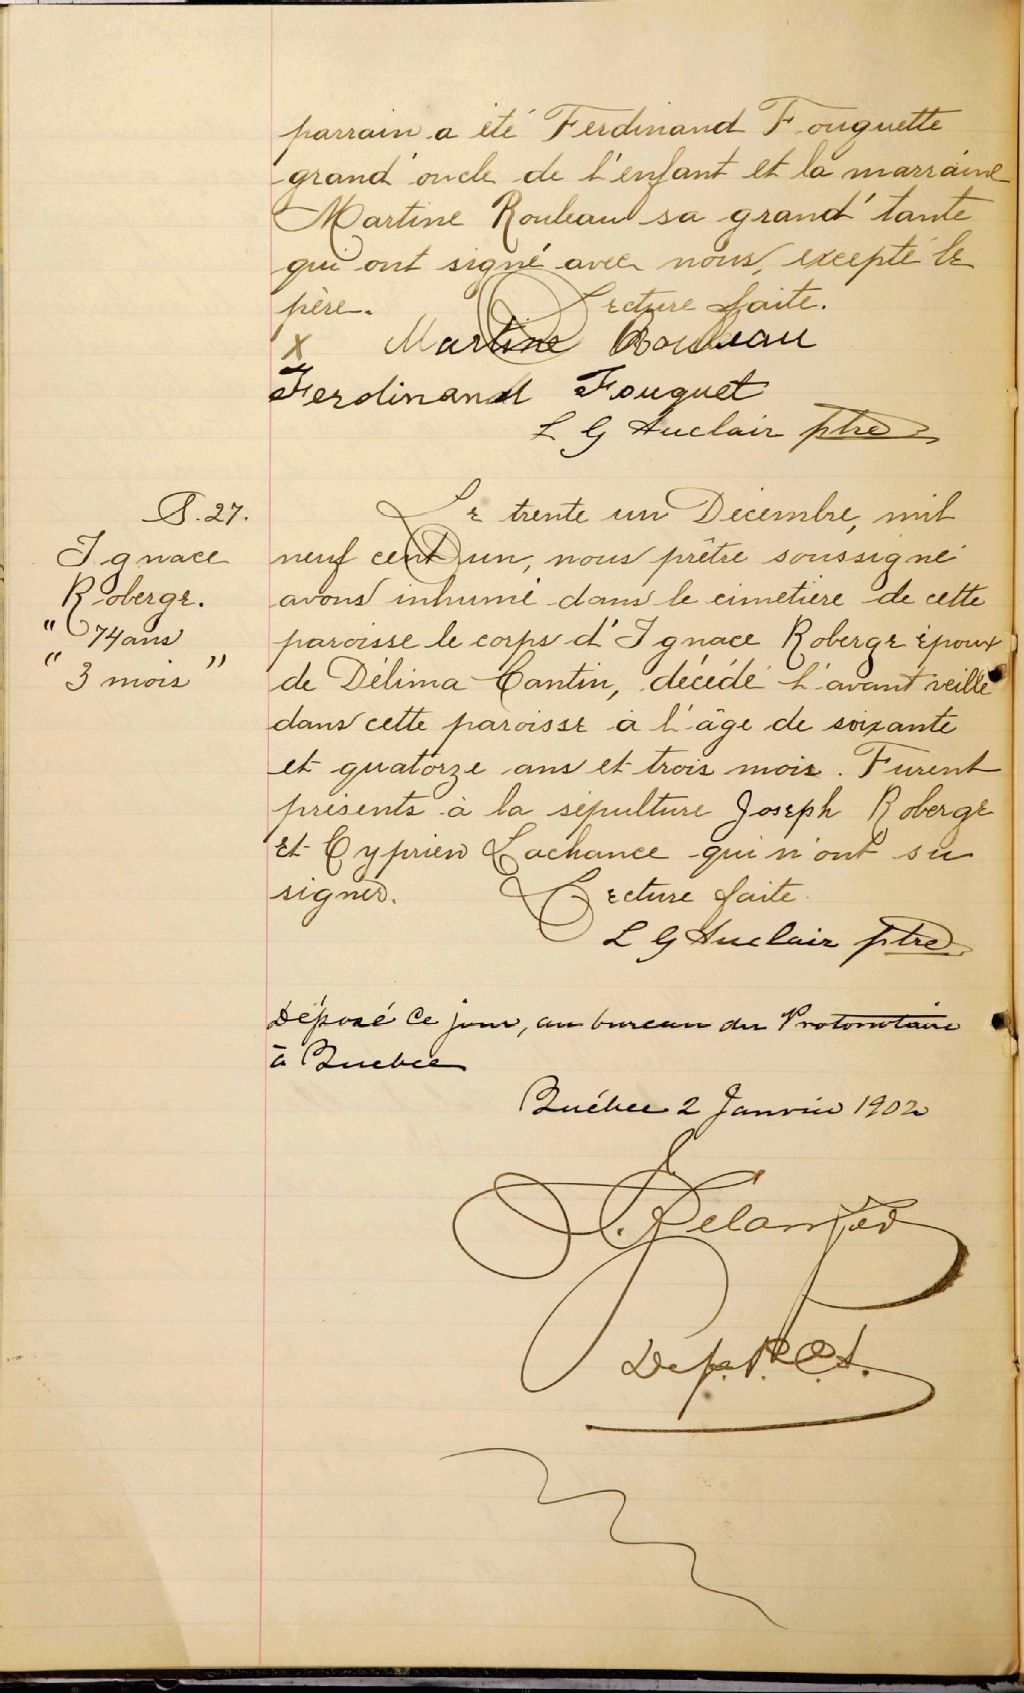 parrain a été Ferdinand Fouquette
grand'oncle de l'enfant et la marraine
Martine Rouleau sa grand'tante
qui ont signé avec nous, excepté le
père. Lecture faite.
X Martine Rouleau
Ferdinand Fouquet
L G Auclair ptre
S. 27.
Ignace
Roberge.
" 74 ans
" 3 mois "
Le trente un Décembre, mil
neuf cent un, nous prêtre soussigné
avons inhumé dans le cimetière de cette
paroisse le corps d'Ignace Roberge époux
de Délima Cantin, décédé l'avant veille
dans cette paroisse à l'âge de soixante
et quatorze ans et trois mois. Furent
présents à la sépulture Joseph Roberge
et Cyprien Lachance qui n'ont su
signer. Lecture faite.
L G Auclair ptre
Déposé ce jour, au bureau du Protonotaire
à Quebec
Québec 2 Janvier 1902
Belanger
Dep. P. C. S.